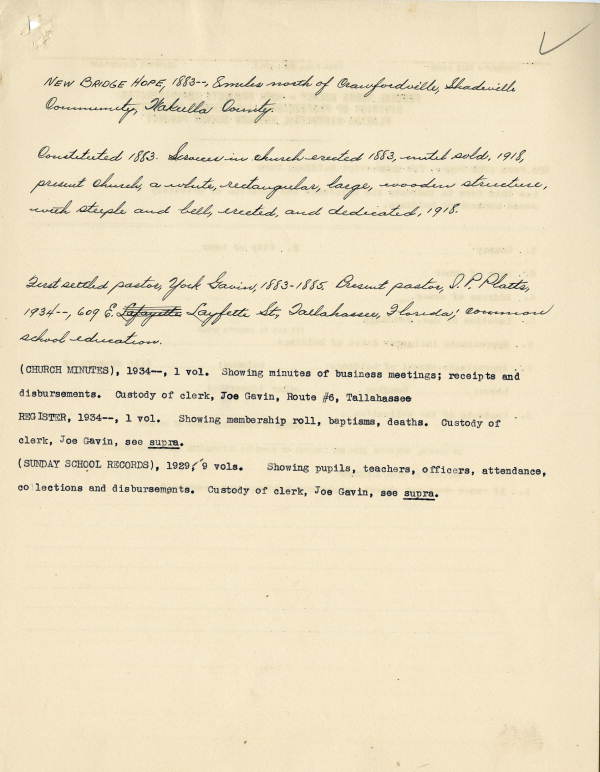 NEW BRIDGE HOPE, 1883--, 8 miles north of Crawfordville, Shadeville
Community, Wakulla County.
Constituted 1883. Services in church erected 1883, until sold, 1918,
present church, a white, rectangular, large, wooden structure,
with steeple and bell, erected, and dedicated, 1918.
First settled pastor, York Gavin, 1883-1885. Present pastor, I. P. Platts,
1934--, 609 E. Lafayette Layfette St., Tallahassee, Florida; common
school education.
(CHURCH MINUTES), 1934--, 1 vol. Showing minutes of business meetings; receipts and
disbursements. Custody of clerk, Joe Gavin, Route #6, Tallahassee
REGISTER, 1934--, 1 vol. Showing membership roll, baptisms, deaths. Custody of
clerk, Joe Gavin, see supra.
(SUNDAY SCHOOL RECORDS), 1929, 9 vols. Showing pupils, teachers, officers, attendance,
collections and disbursements. Custody of clerk, Joe Gavin, see supra.